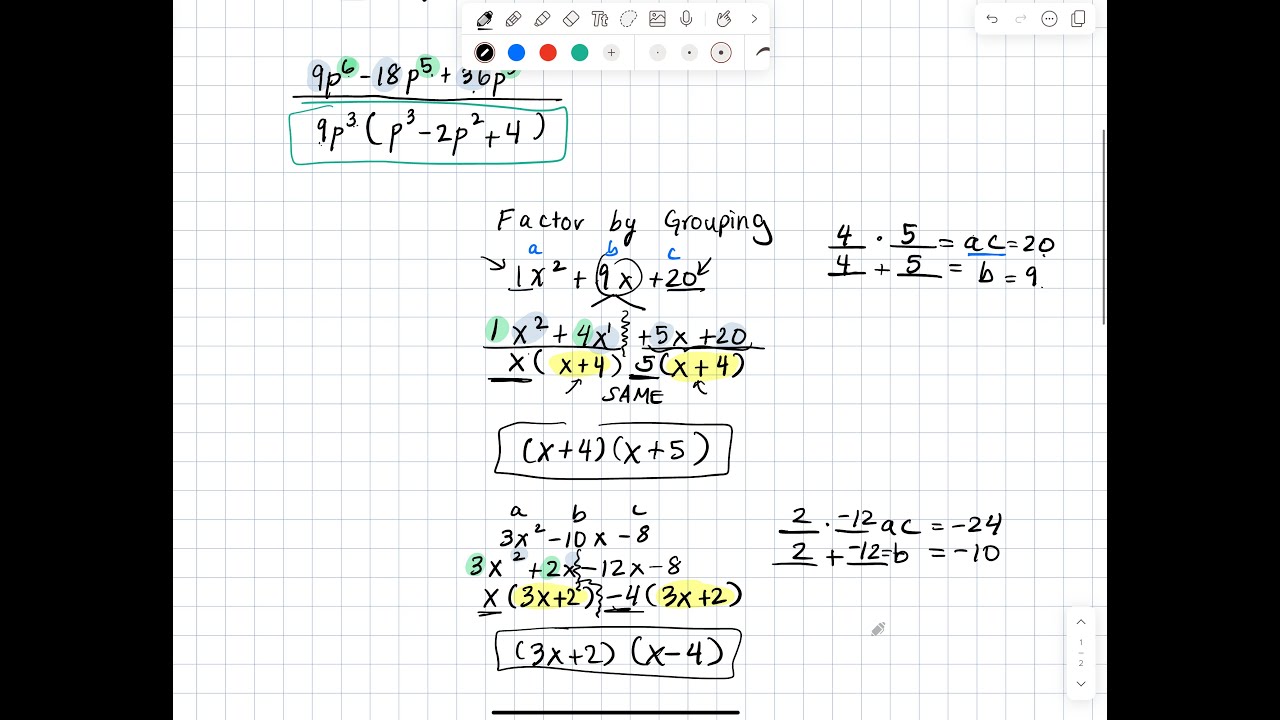 Tt
9p⁶ - 18p⁵ + 36p
9p³ ( p³ - 2p² + 4 )
Factor by Grouping
a b c
1x² + 9x + 20
4 · 5 = ac = 20
4 + 5 = b = 9
1x² + 4x¹ + 5x + 20
x( x+4) 5(x+4)
SAME
(x+4)(x+5)
a b c
3x² - 10x - 8
2 · -12 ac = -24
2 + -12 = b = -10
3x² + 2x - 12x - 8
x (3x+2) -4 (3x+2)
(3x+2) (x-4)
1
2